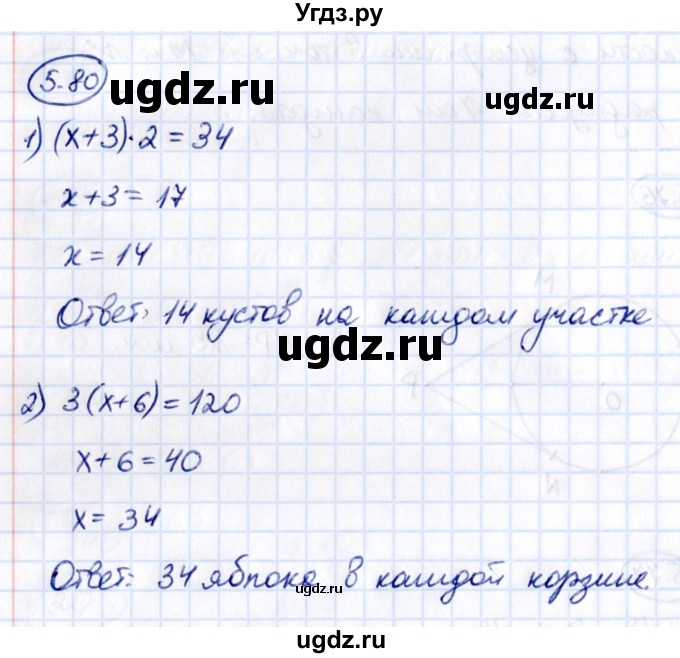 Угдз.ру
5.80
ugdz.ru
1) (x+3)·2 = 34
x+3 = 17
x = 14
Ответ: 14 кустов на каждом участке
ugdz.ru
2) 3(x+6) = 120
x+6 = 40
x = 34
Ответ: 34 яблока в каждой корзине.
ugdz.ru
ugdz.ru